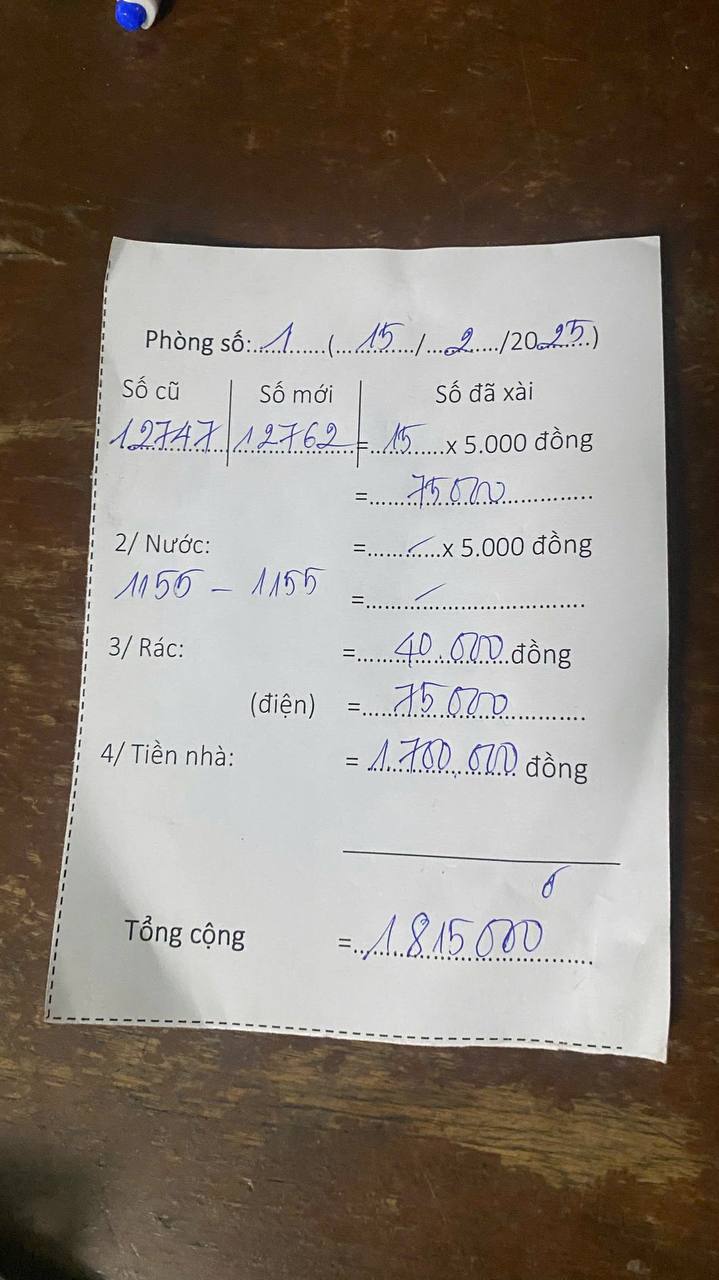 Phòng số: 1 ( 15 / 2 /2025 )
Số cũ Số mới Số đã xài
12747 12762 = 15 x 5.000 đồng
= 75000
2/ Nước: = / x 5.000 đồng
1155 - 1155 = /
3/ Rác: = 40.000 đồng
(điện) = 75000
4/ Tiền nhà: = 1.700.000 đồng
đ
Tổng cộng = 1815000